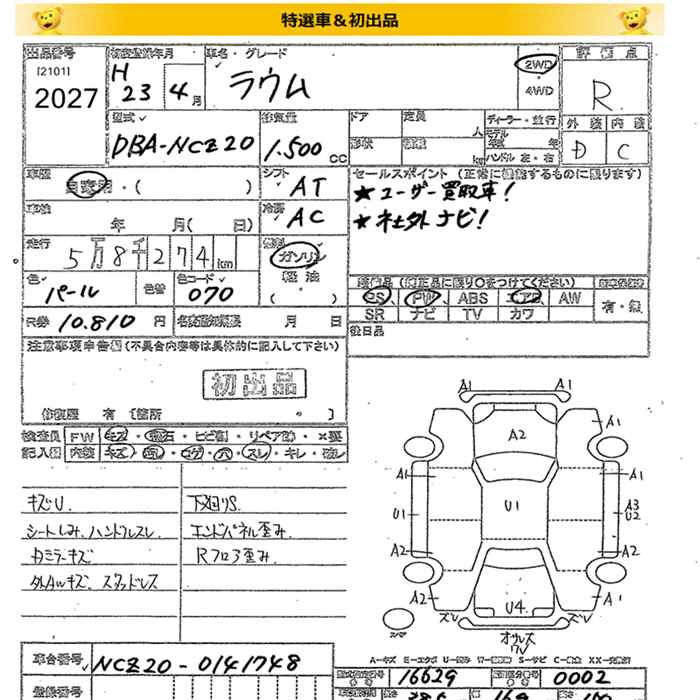 特選車＆初出品
出品番号
[2101]
2027
初度登録年月
H
23 4月
車名・グレード
ラウム
2WD
4WD
評価点
R
外装 内装
D C
型式
DBA-NCZ20
排気量
1.500 CC
ドア 定員 人
形状
ディーラー・並行
モデル
年式 年
ハンドル 左・右
車歴
自家用・( )
シフト
AT
セールスポイント (正常に機能するものに限ります)
★ユーザー買取車!
★社外ナビ!
車検
年 月( 日)
冷房
AC
走行
5万8千274km
燃料
ガソリン
軽油
( )
色
パール
色替
色コード
070
装備品(純正品に限り○をつけてください)
PS PW ABS エアB AW
SR ナビ TV カワ
有・無
R券 10.810 円
名義変更期限 月 日
後日品
注意事項申告欄(不具合内容等は具体的に記入して下さい)
初出品
修復歴 有 〔箇所 。 〕
検査員 FW キズ・飛石・ヒビ割・リペア跡・×要
記入欄 内装 キズ・汚レ・コゲ・穴・スレ・キレ・濡レ
キズU.
シートしみ.ハンドルスレ
カミラーキズ
外AWキズ.スタッドレス
下廻りS.
エンドパネル歪み.
Rフロア歪み.
A1 A1
A2
A1
A1 A1
U1
U1
A3
U2
A2 A2
A2 A2
ズレ ズレ
U4
オサレス
WV
A-キズ E-エクボ
車台番号
NCZ20-0141748
16629
0002
登録番号